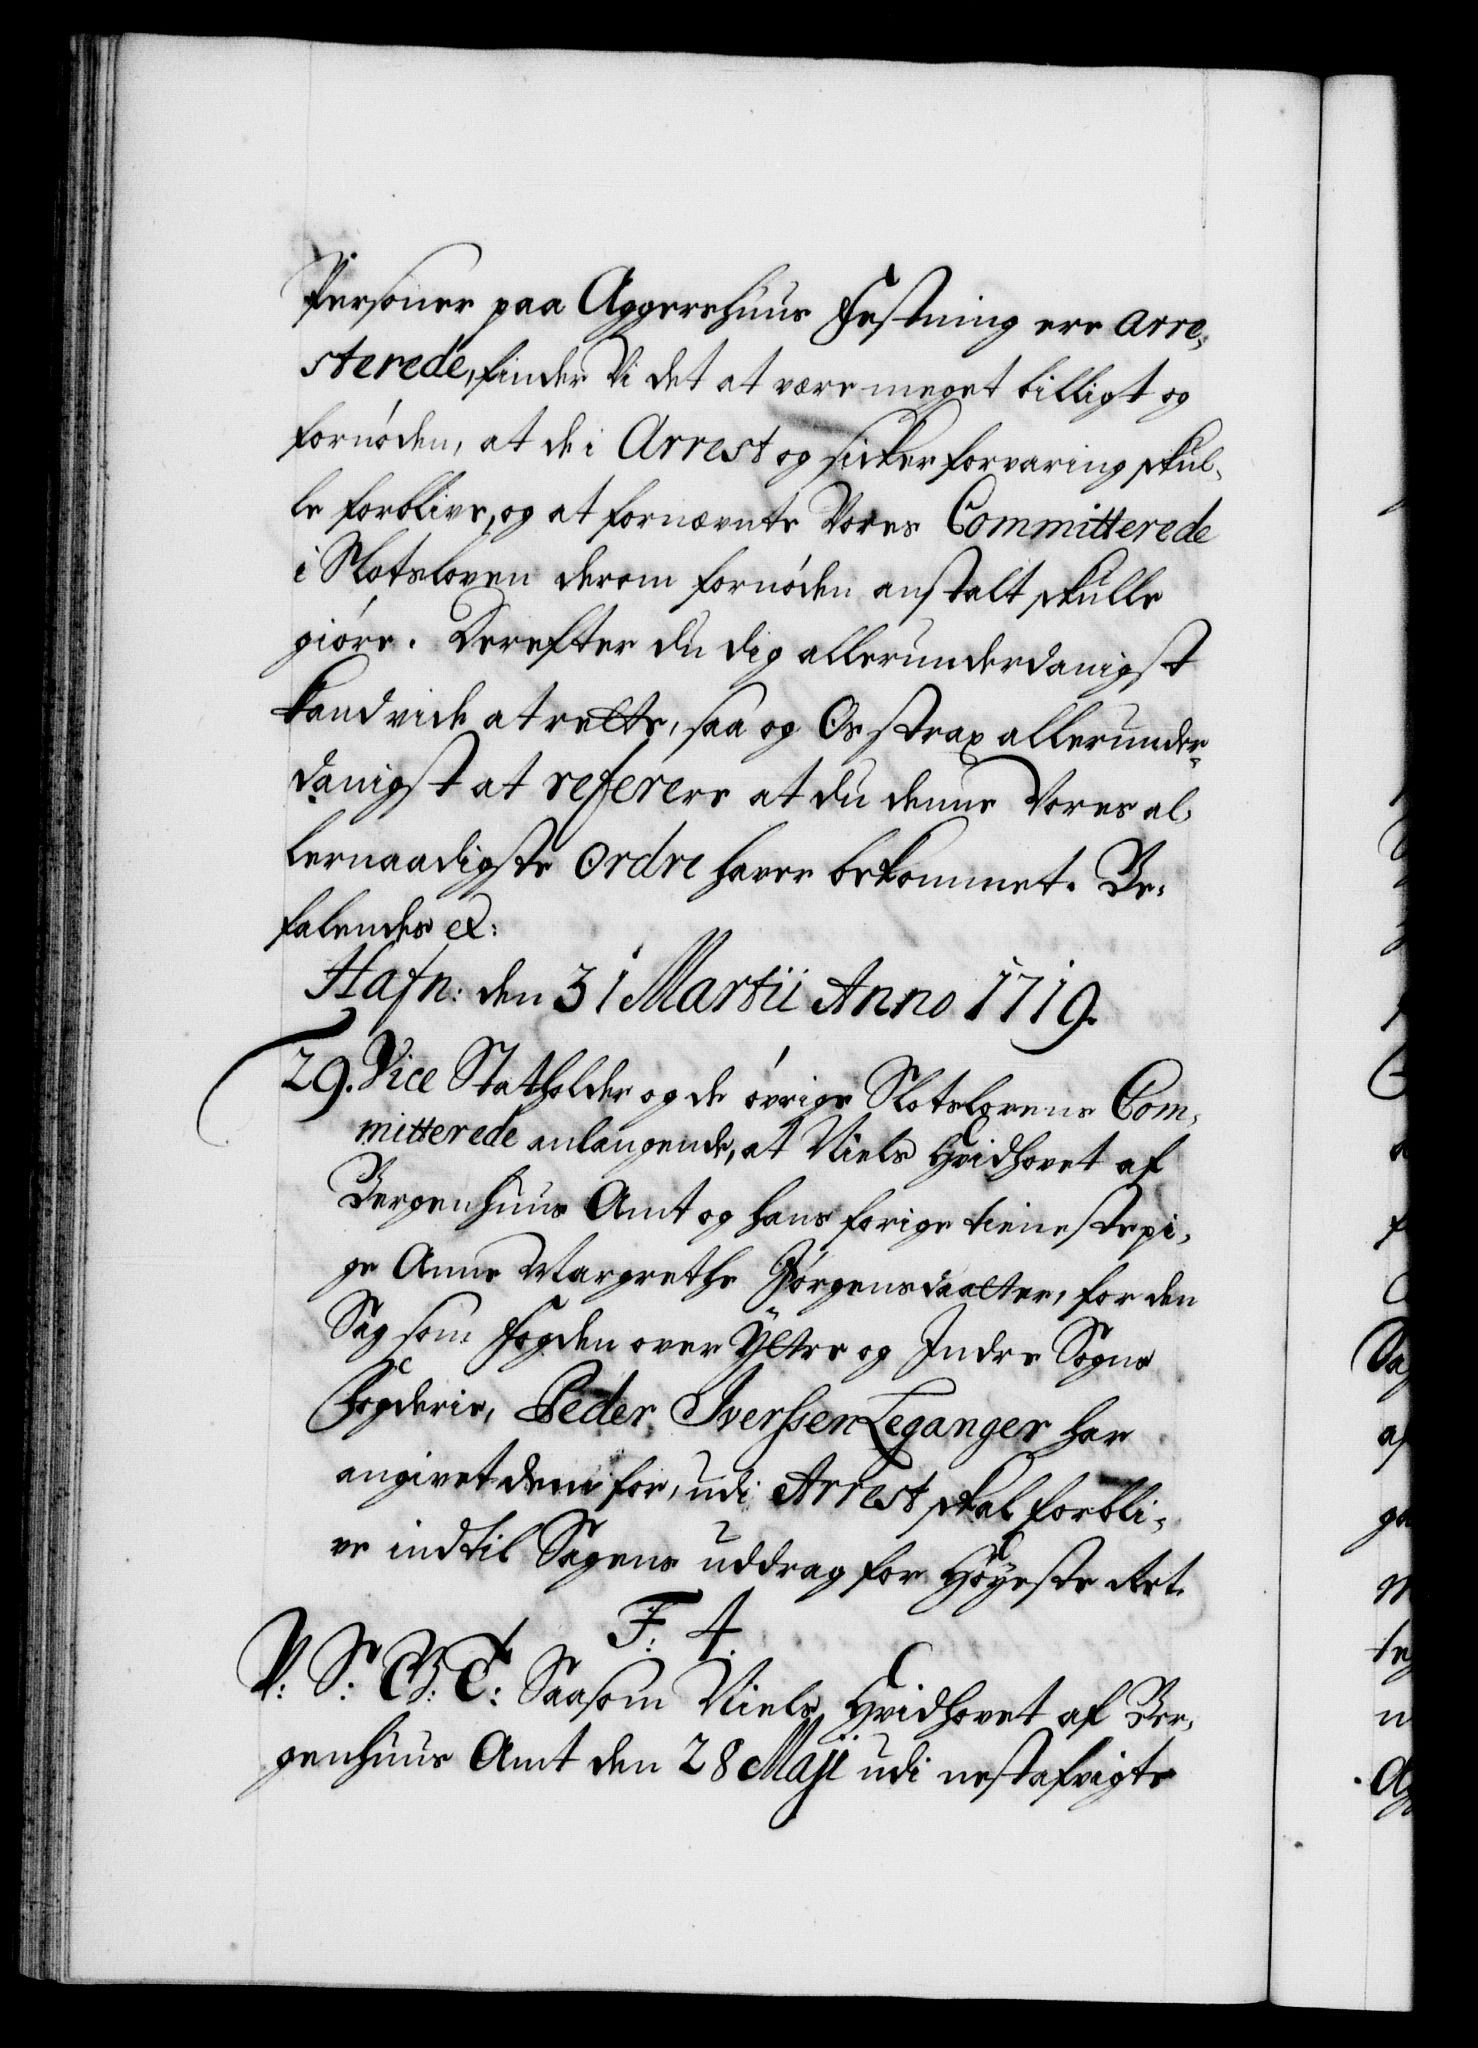 Personer paa Aggershuus Festning ere arre-
sterede, finder Vi det at være meget billigt og
fornöden, at de i Arrest og sicker forvaring skul-
le forblive, og at fornævnte Vores Committerede
i Slotsloven derom fornöden anstalt skulle
giöre. Derefter du dig allerunderdanigst
kand vide at rette, saa og Os strax allerunder-
danigst at referere at du denne Vores al-
lernaadigste Ordre haver bekommet. Be-
falendes etc:
Hafn: den 31 Martii Anno 1719.
29. Vice Statholder og de övrige Slotslovens Com-
mitterede anlangende, at Niels Hvidhovet af
Bergenhuus Amt og hans forige tienestepi-
ge Anne Margrethe Jörgensdaatter, for den
Sag som Fogden over Yttre og Indre Sogns
Fogderie, Peder Iverssen Leganger har
angivet dem for, udi Arrest skal forbli-
ve indtil Sagens uddrag for Höyeste Ret.
F: 4.
V: S: G: T: Saasom Niels Hvidhovet af Ber-
genhuus Amt den 28 Maji udi nestafvigte